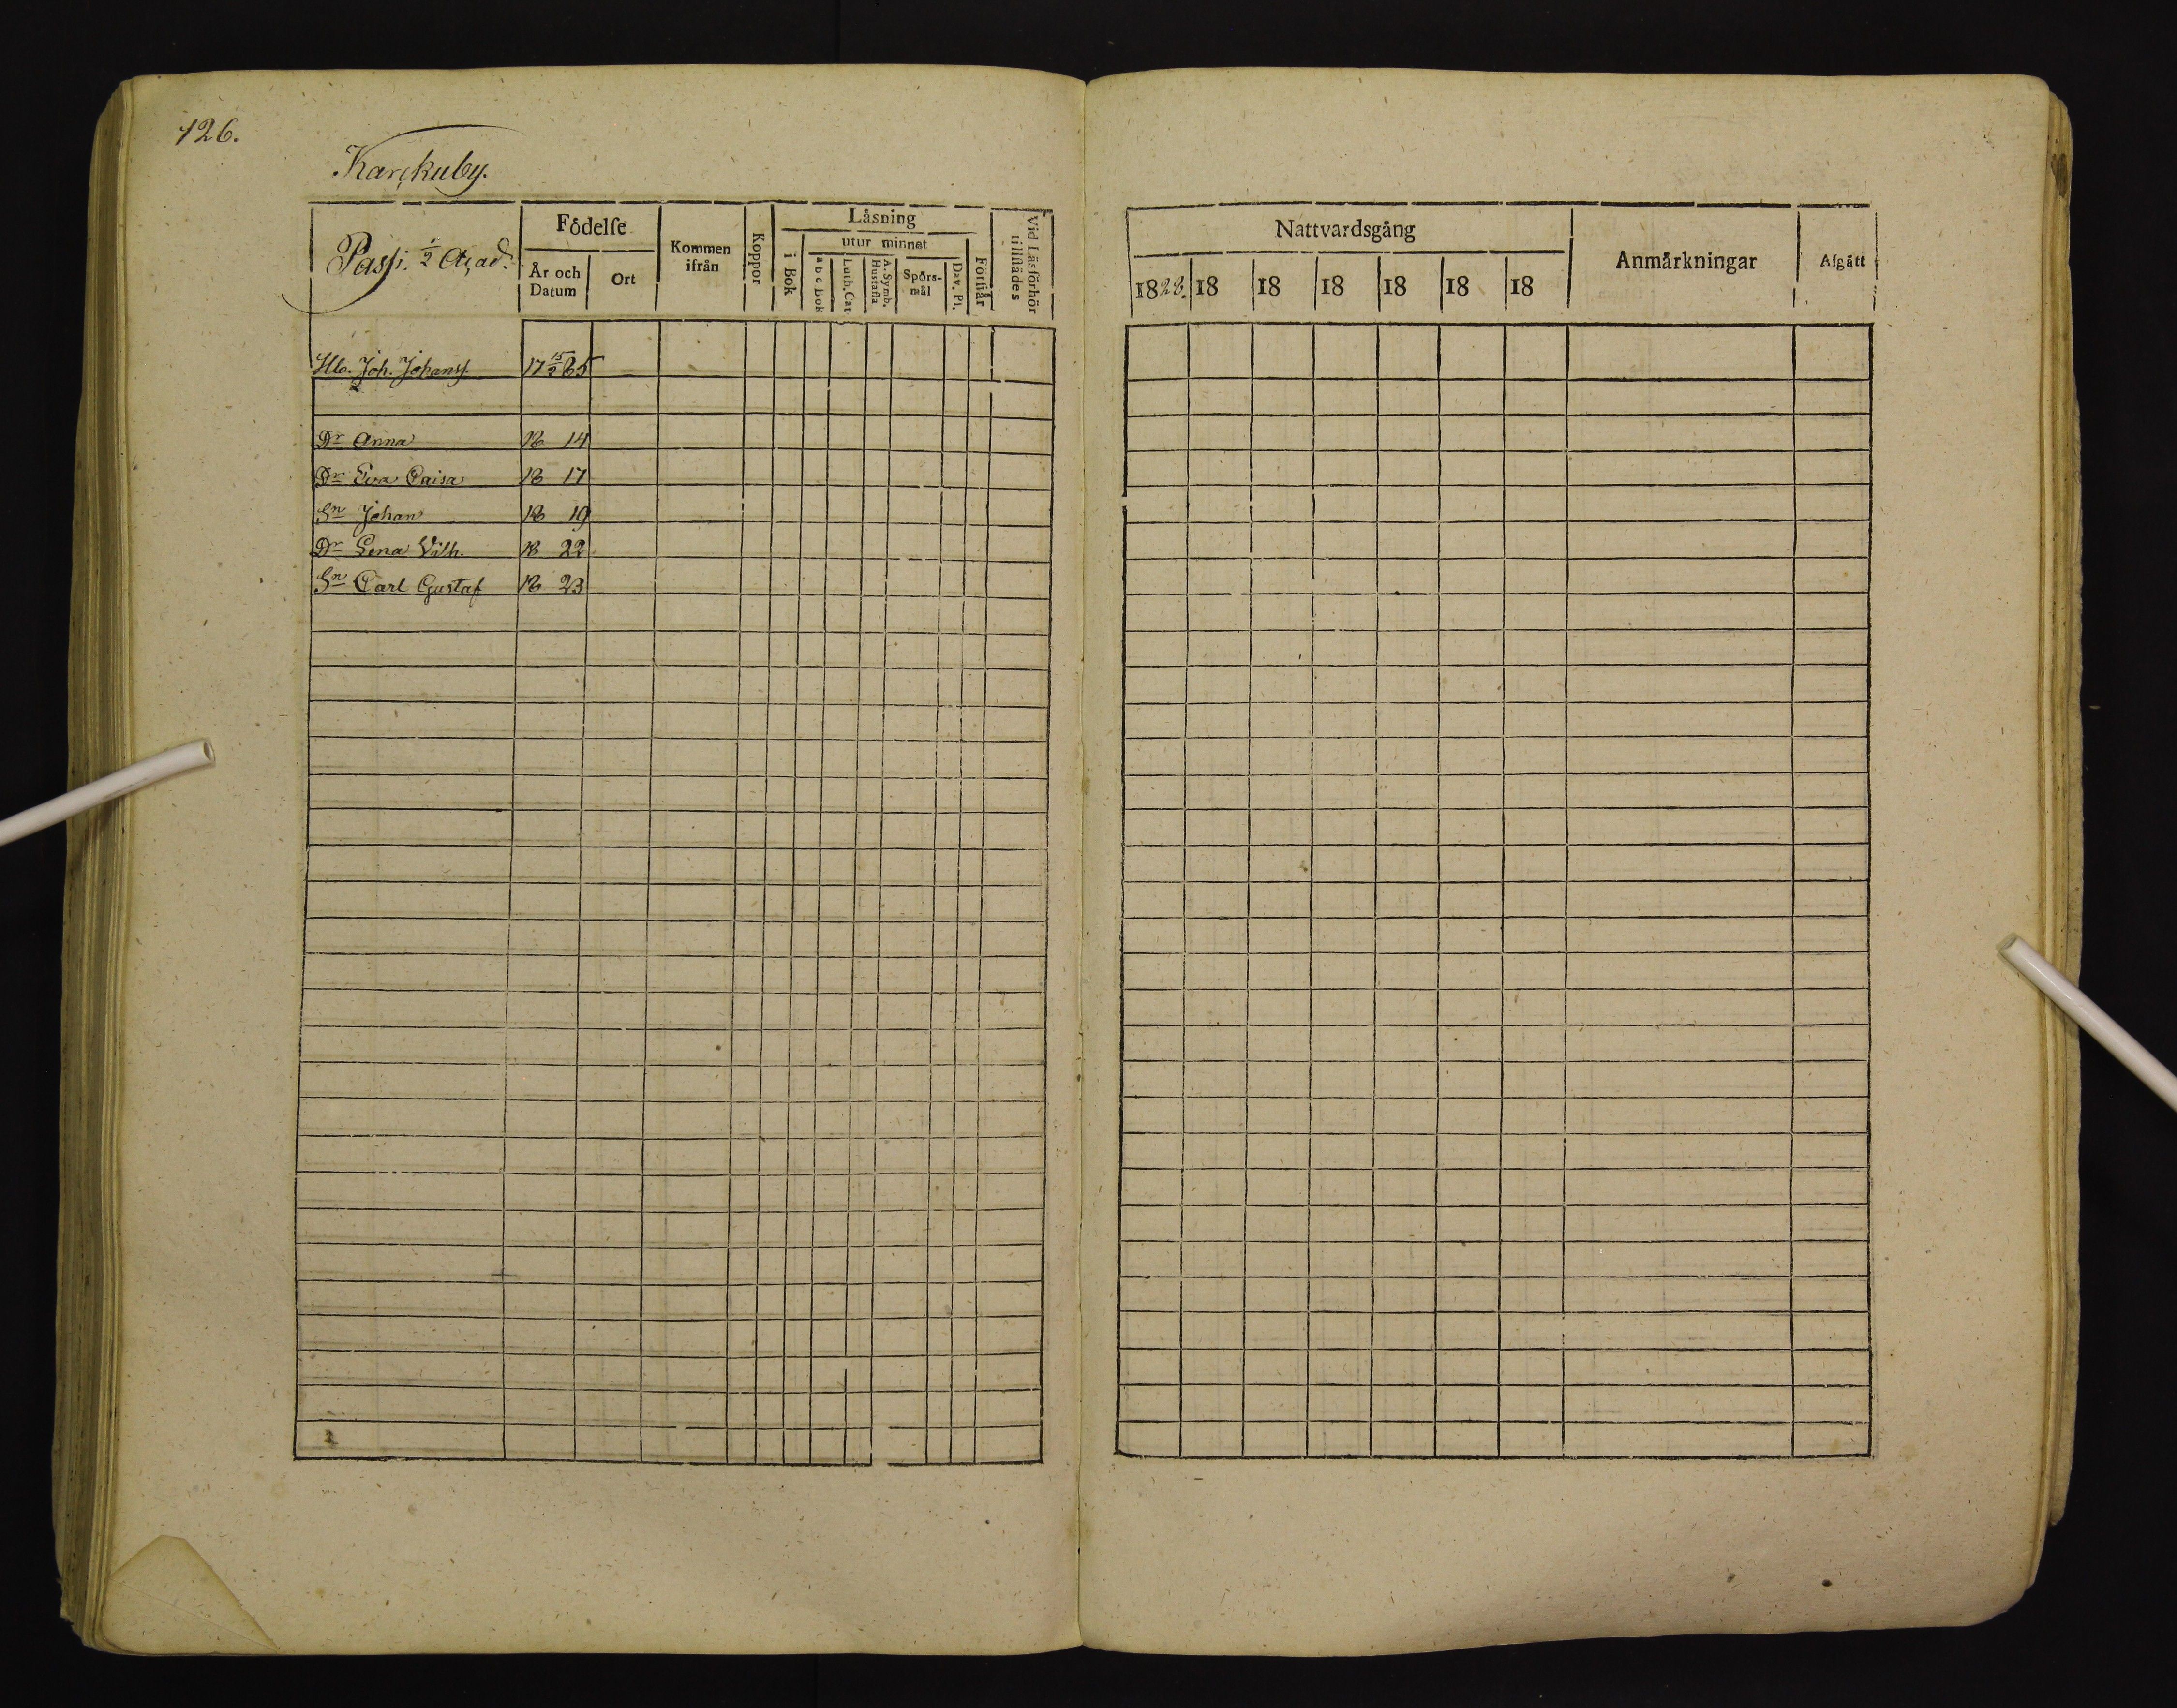 126.
Karckuby.
Passi. 1/2 Acad.
Födelse
År och Datum
Ort
Kommen ifrån
Koppor
Läsning
i Bok
utur minnet
a b c Bok
Luth. Cat
A. Symb. Hustafla
Spörs-mål
Dav. Ps.
Förstår
Vid Läsförhör tillstädes
Nattvardsgång
1823. 18 18 18 18 18 18
Anmärkningar
Afgått
Joh. Johanss. 17 15/2 65
Dr Anna 18 14
Dr Eva Caisa 18 17
Sn Johan 18 19
Dr Lena Vilh. 18 22
Sn Carl Gustaf 18 23